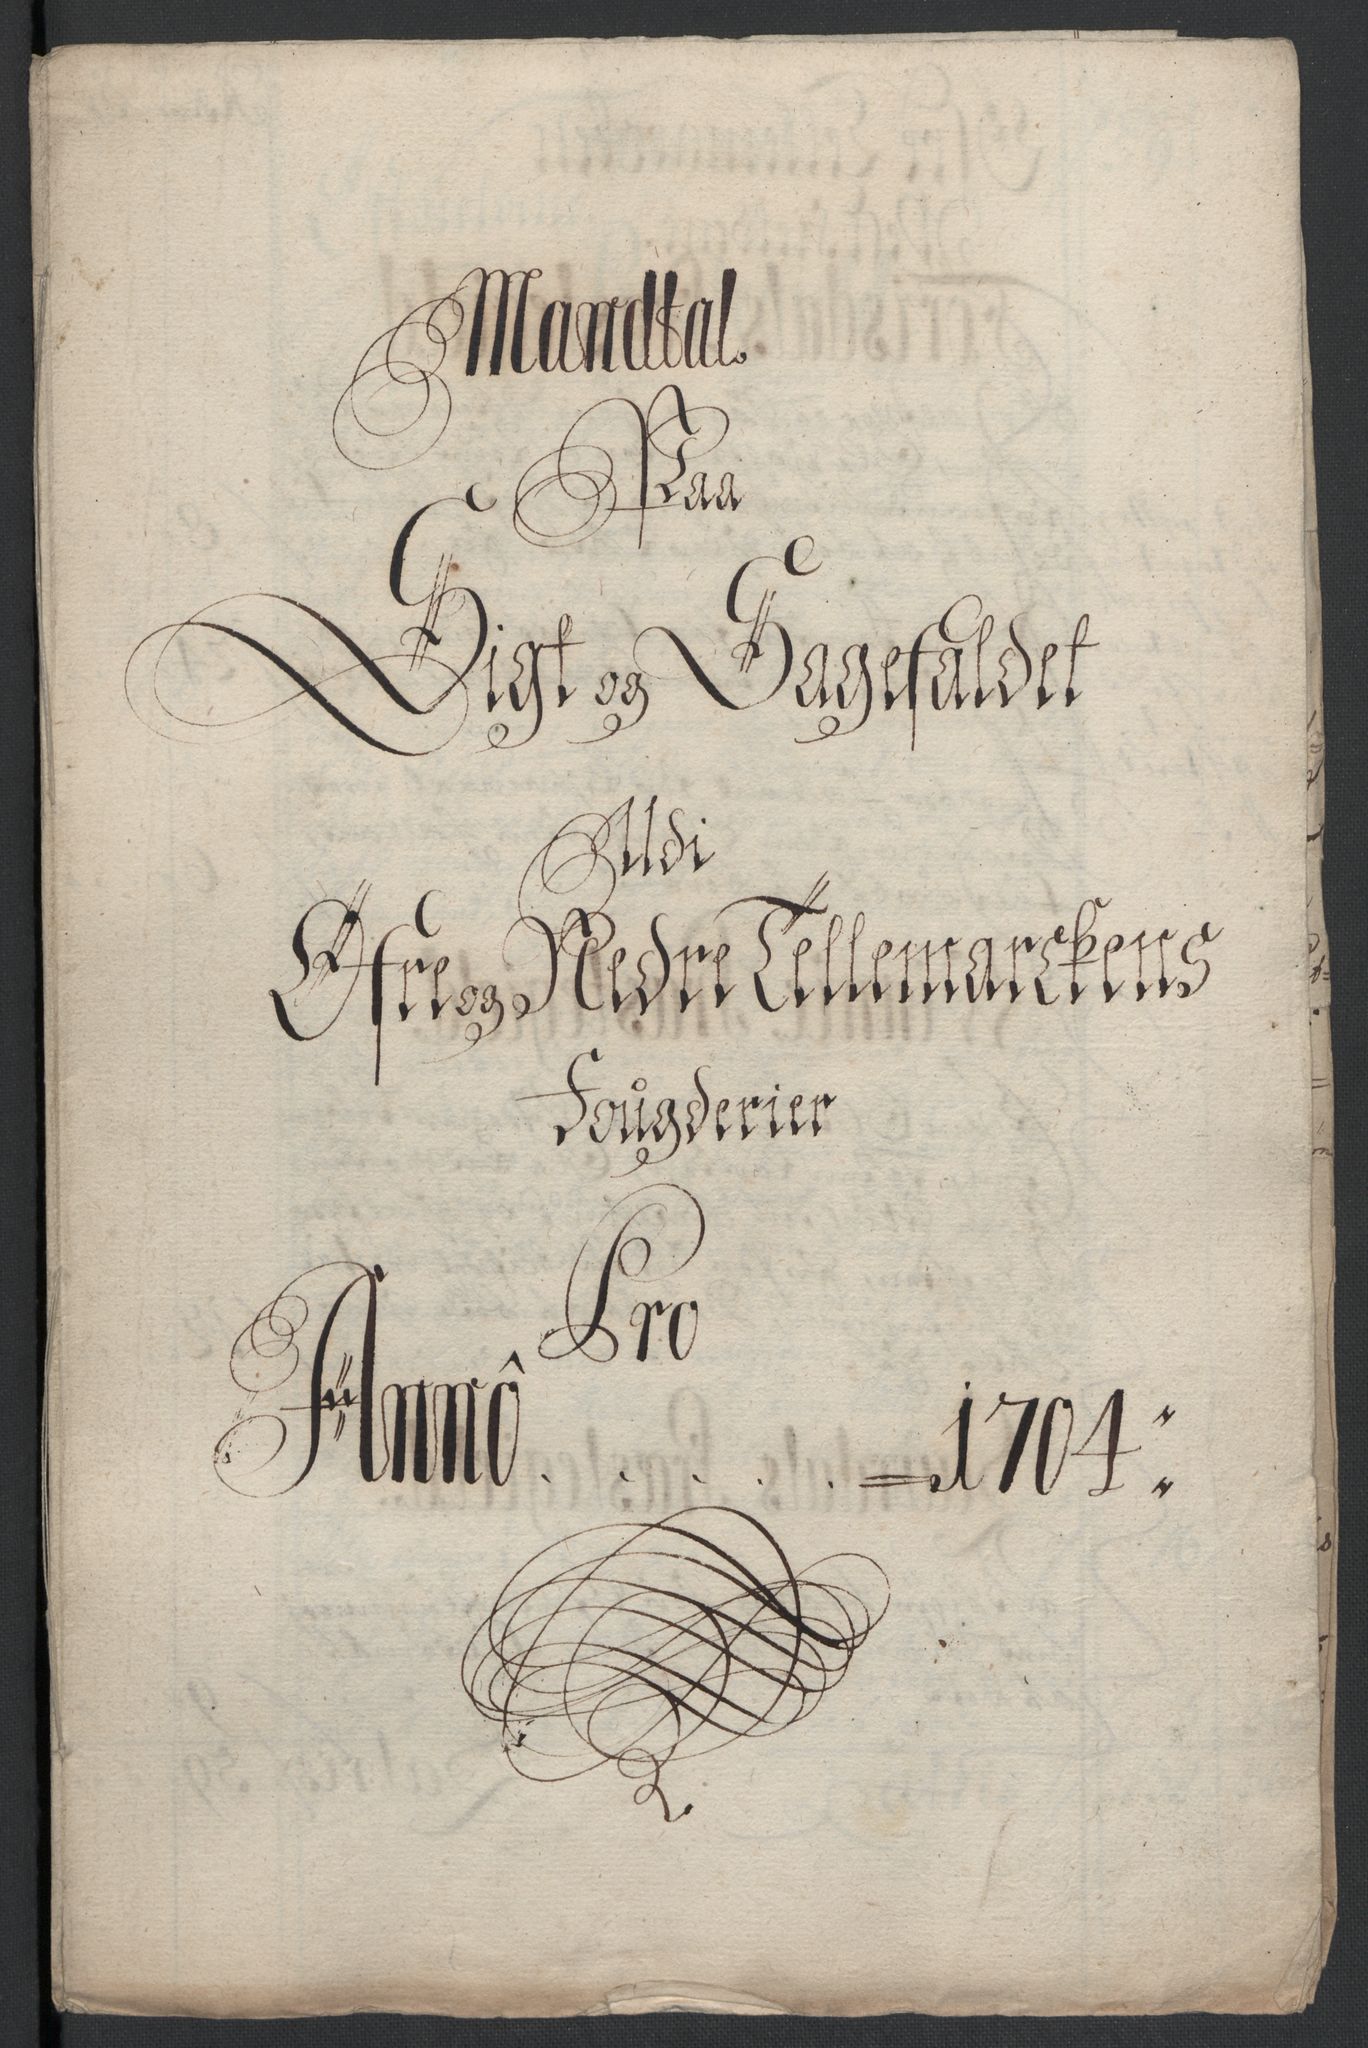 Mandtal.
Paa
Sigt og Sagefaldet
Udi
Øfre og Nedre Tellemarckens
Fougderier
Pro
Annô . . . . . = 1704